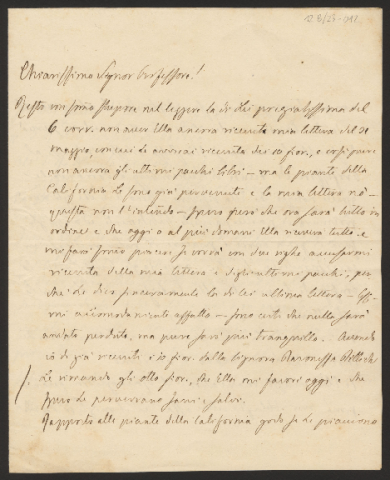 Chiarissimo Signor Professore!
Resto in somma stupore nel leggere la di Lei pregiatissima del
6 corr. non aver Ella ancora ricevuta mia lettera del 31
maggio, con cui Le avvisai ricevuta dei 10 fior., e così pure
non ancora gli ultimi pacchi libri – ma le piante della
California Le sono già pervenute e la mia lettera nò –
questa non l'intendo – Spero però che ora sarà tutto in
ordine e che oggi o al più domani Ella riceverà tutto, e
mi farà sommo piacere se vorrà con due righe accusarmi
ricevuta della mia lettera e degli ultimi pacchi, per
chè Le dico sinceramente la di Lei ultima lettera
mi accomoda niente affatto – sono certo che nulla sarà
andato perduto, ma pure sarò più tranquillo. Avendo
io di già ricevuti i 10 fior. dalla Signora Baronessa
Le rimando gli otto fior., che Ella mi favorì oggi e che
spero Le perverranno sani e salvi.
Rapporto alle piante della California godo se Le piacciono